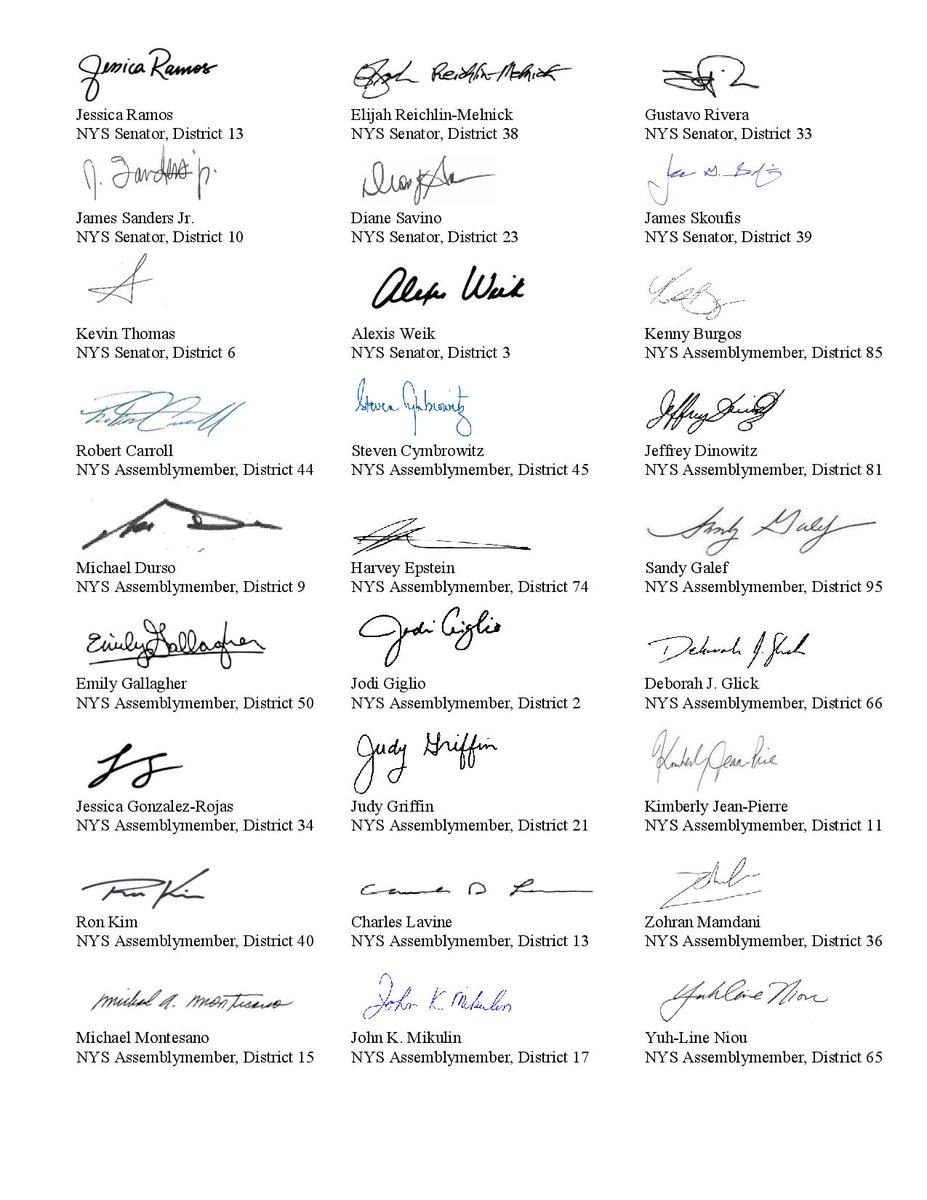 Jessica Ramos
Elijah Reichlin-Melnick
Jessica Ramos
Elijah Reichlin-Melnick
Gustavo Rivera
NYS Senator, District 13
NYS Senator, District 38
NYS Senator, District 33
J. Sanders jr.
James Sanders Jr.
Diane Savino
James Skoufis
NYS Senator, District 10
NYS Senator, District 23
NYS Senator, District 39
Alexis Weik
Kevin Thomas
Alexis Weik
Kenny Burgos
NYS Senator, District 6
NYS Senator, District 3
NYS Assemblymember, District 85
Steven Cymbrowitz
Robert Carroll
Steven Cymbrowitz
Jeffrey Dinowitz
NYS Assemblymember, District 44
NYS Assemblymember, District 45
NYS Assemblymember, District 81
Sandy Galef
Michael Durso
Harvey Epstein
Sandy Galef
NYS Assemblymember, District 9
NYS Assemblymember, District 74
NYS Assemblymember, District 95
Emily Gallagher
Jodi Giglio
Deborah J. Glick
Emily Gallagher
Jodi Giglio
Deborah J. Glick
NYS Assemblymember, District 50
NYS Assemblymember, District 2
NYS Assemblymember, District 66
Judy Griffin
Jessica Gonzalez-Rojas
Judy Griffin
Kimberly Jean-Pierre
NYS Assemblymember, District 34
NYS Assemblymember, District 21
NYS Assemblymember, District 11
Ron Kim
Ron Kim
Charles Lavine
Zohran Mamdani
NYS Assemblymember, District 40
NYS Assemblymember, District 13
NYS Assemblymember, District 36
Michael A. Montesano
John K. Mikulin
Yuh-Line Niou
Michael Montesano
John K. Mikulin
Yuh-Line Niou
NYS Assemblymember, District 15
NYS Assemblymember, District 17
NYS Assemblymember, District 65